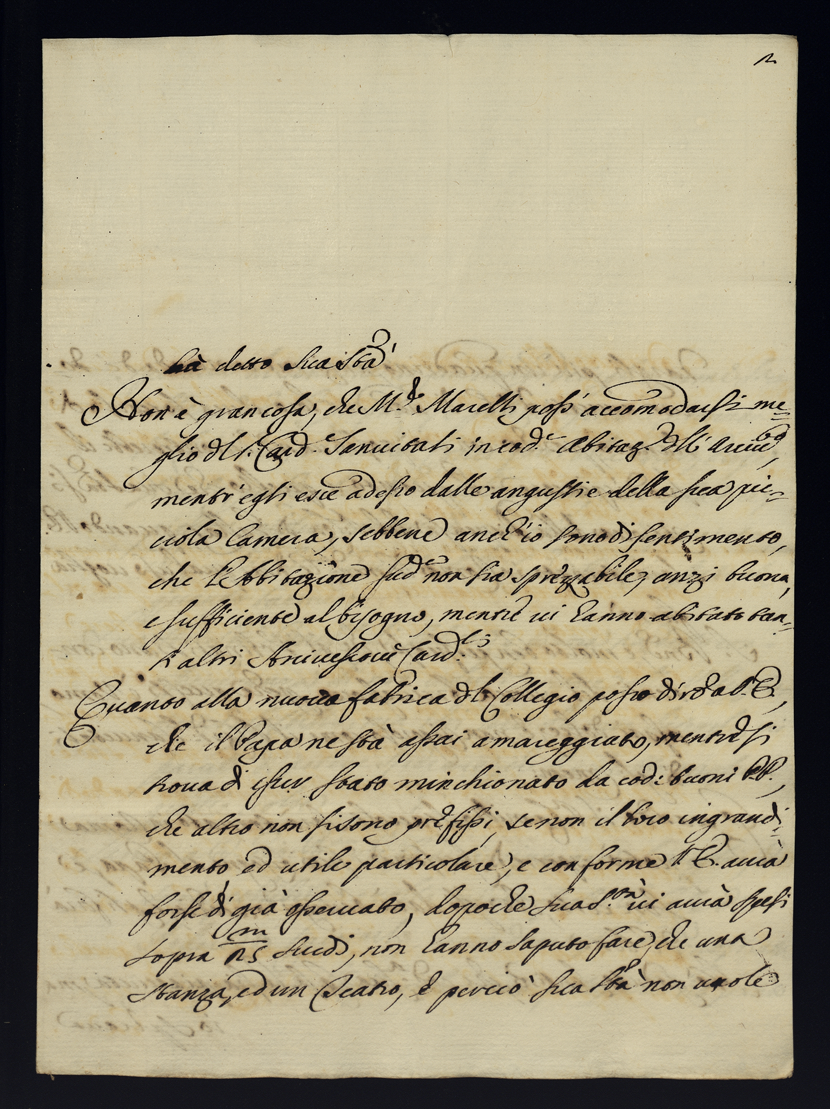 2
hà detto sua Stà
Non è gran cosa, che M.r Marelli possi accomodarsi me=
glio dl S. Card. Sanvitali in cod.e Abitaz.e dlli Arciv.i,
mentr'egli esce adesso dalle angustie della sua pic=
ciola Camera, sebbene anch'io sono di sentimento,
che l'Abbitazione sud.e non sia sprezzabile, anzi buona,
e sufficiente al bisogno, mentre vi hanno abitato tan=
ti altri Arcivescovi Card.li;
Quanto alla nuova fabrica dl Collegio posso dire a V. E.,
che il Papa ne stà assai amareggiato, mentre si
trova d'esser stato minchionato da cod.i buoni P.P.,
che altro non si sono prefissi, se non il loro ingrandi=
mento ed utile particolare, e conforme V. E. avrà
forse di già osservato, dopo che sua S.tà vi avrà spesi
sopra m/15 scudi, non hanno saputo fare, che una
stanza, ed un Teatro, e perciò sua Stà non vuole